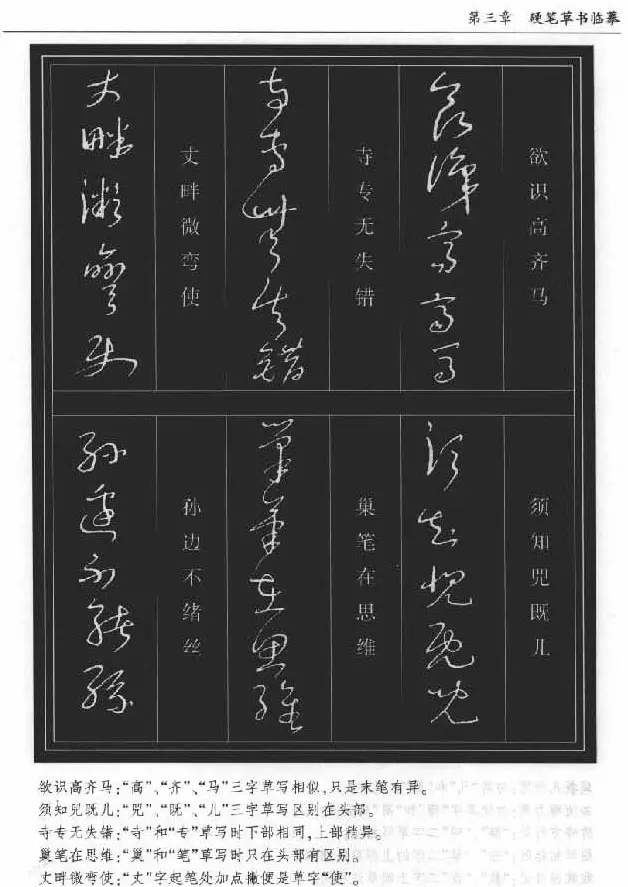 第三章 硬笔草书临摹
欲识高齐马
寺专无失错
丈畔微弯使
须知兕既儿
巢笔在思维
孙边不绪丝
欲识高齐马:“高”、“齐”、“马”三字草写相似,只是末笔有异。
须知兕既儿:“兕”、“既”、“儿”三字草写区别在头部。
寺专无失错:“寺”和“专”草写时下部相同,上部稍异。
巢笔在思维:“巢”和“笔”草写时只在头部有区别。
丈畔微弯使:“丈”字起笔处加点撇便是草字“使”。